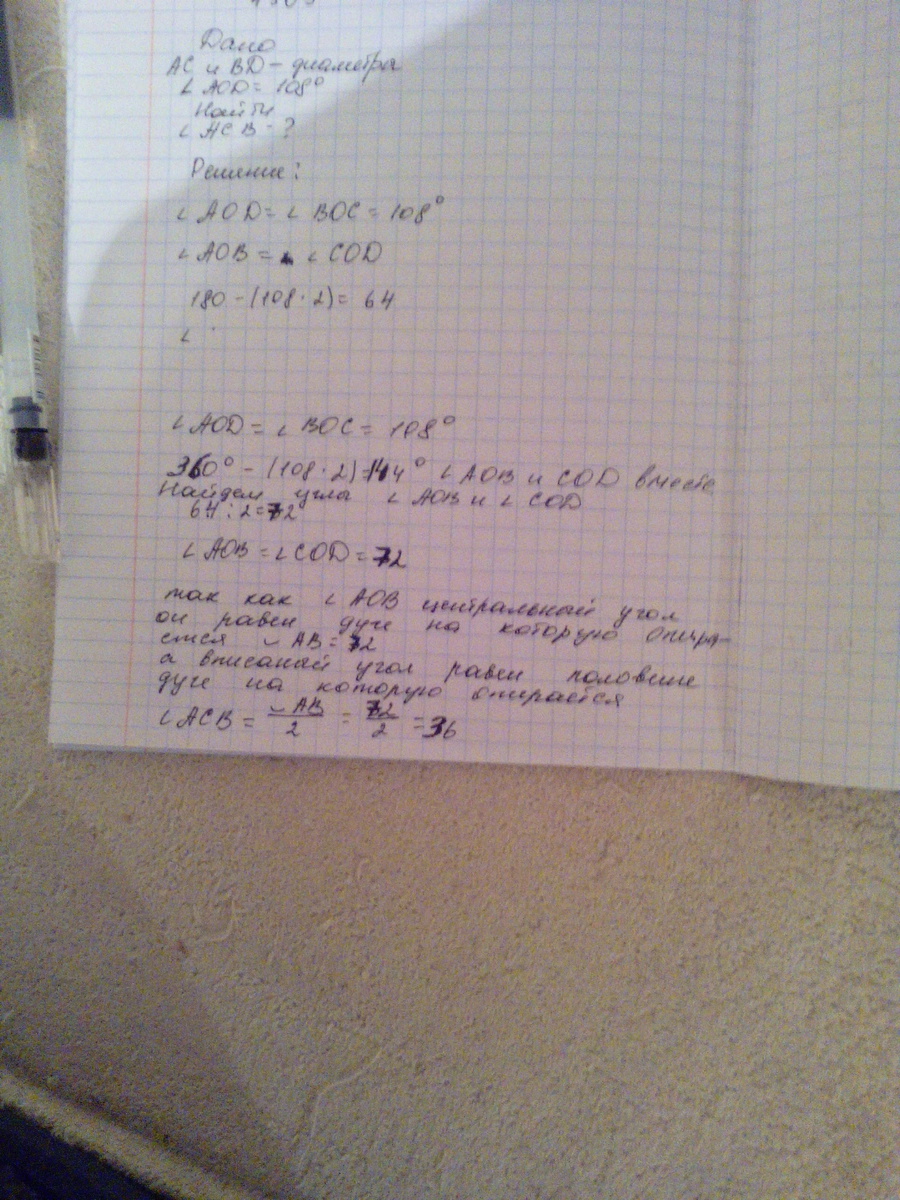 Дано
AC и BD - диаметры
∠ AOD = 108°
Найти
∠ ACB - ?
Решение:
∠ AOD = ∠ BOC = 108°
∠ AOB = ∠ COD
180 - (108 · 2) = 64
∠
∠ AOD = ∠ BOC = 108°
360° - (108 · 2) = 144° ∠ AOB и COD вместе
Найдем углы ∠ AOB и ∠ COD
64 : 2 = 72
∠ AOB = ∠ COD = 72
так как ∠ AOB центральный угол
он равен дуге на которую опира-
ется ◡ AB = 72
а вписаный угол равен половине
дуге на которую опирается
∠ ACB = ◡ AB / 2 = 72 / 2 = 36